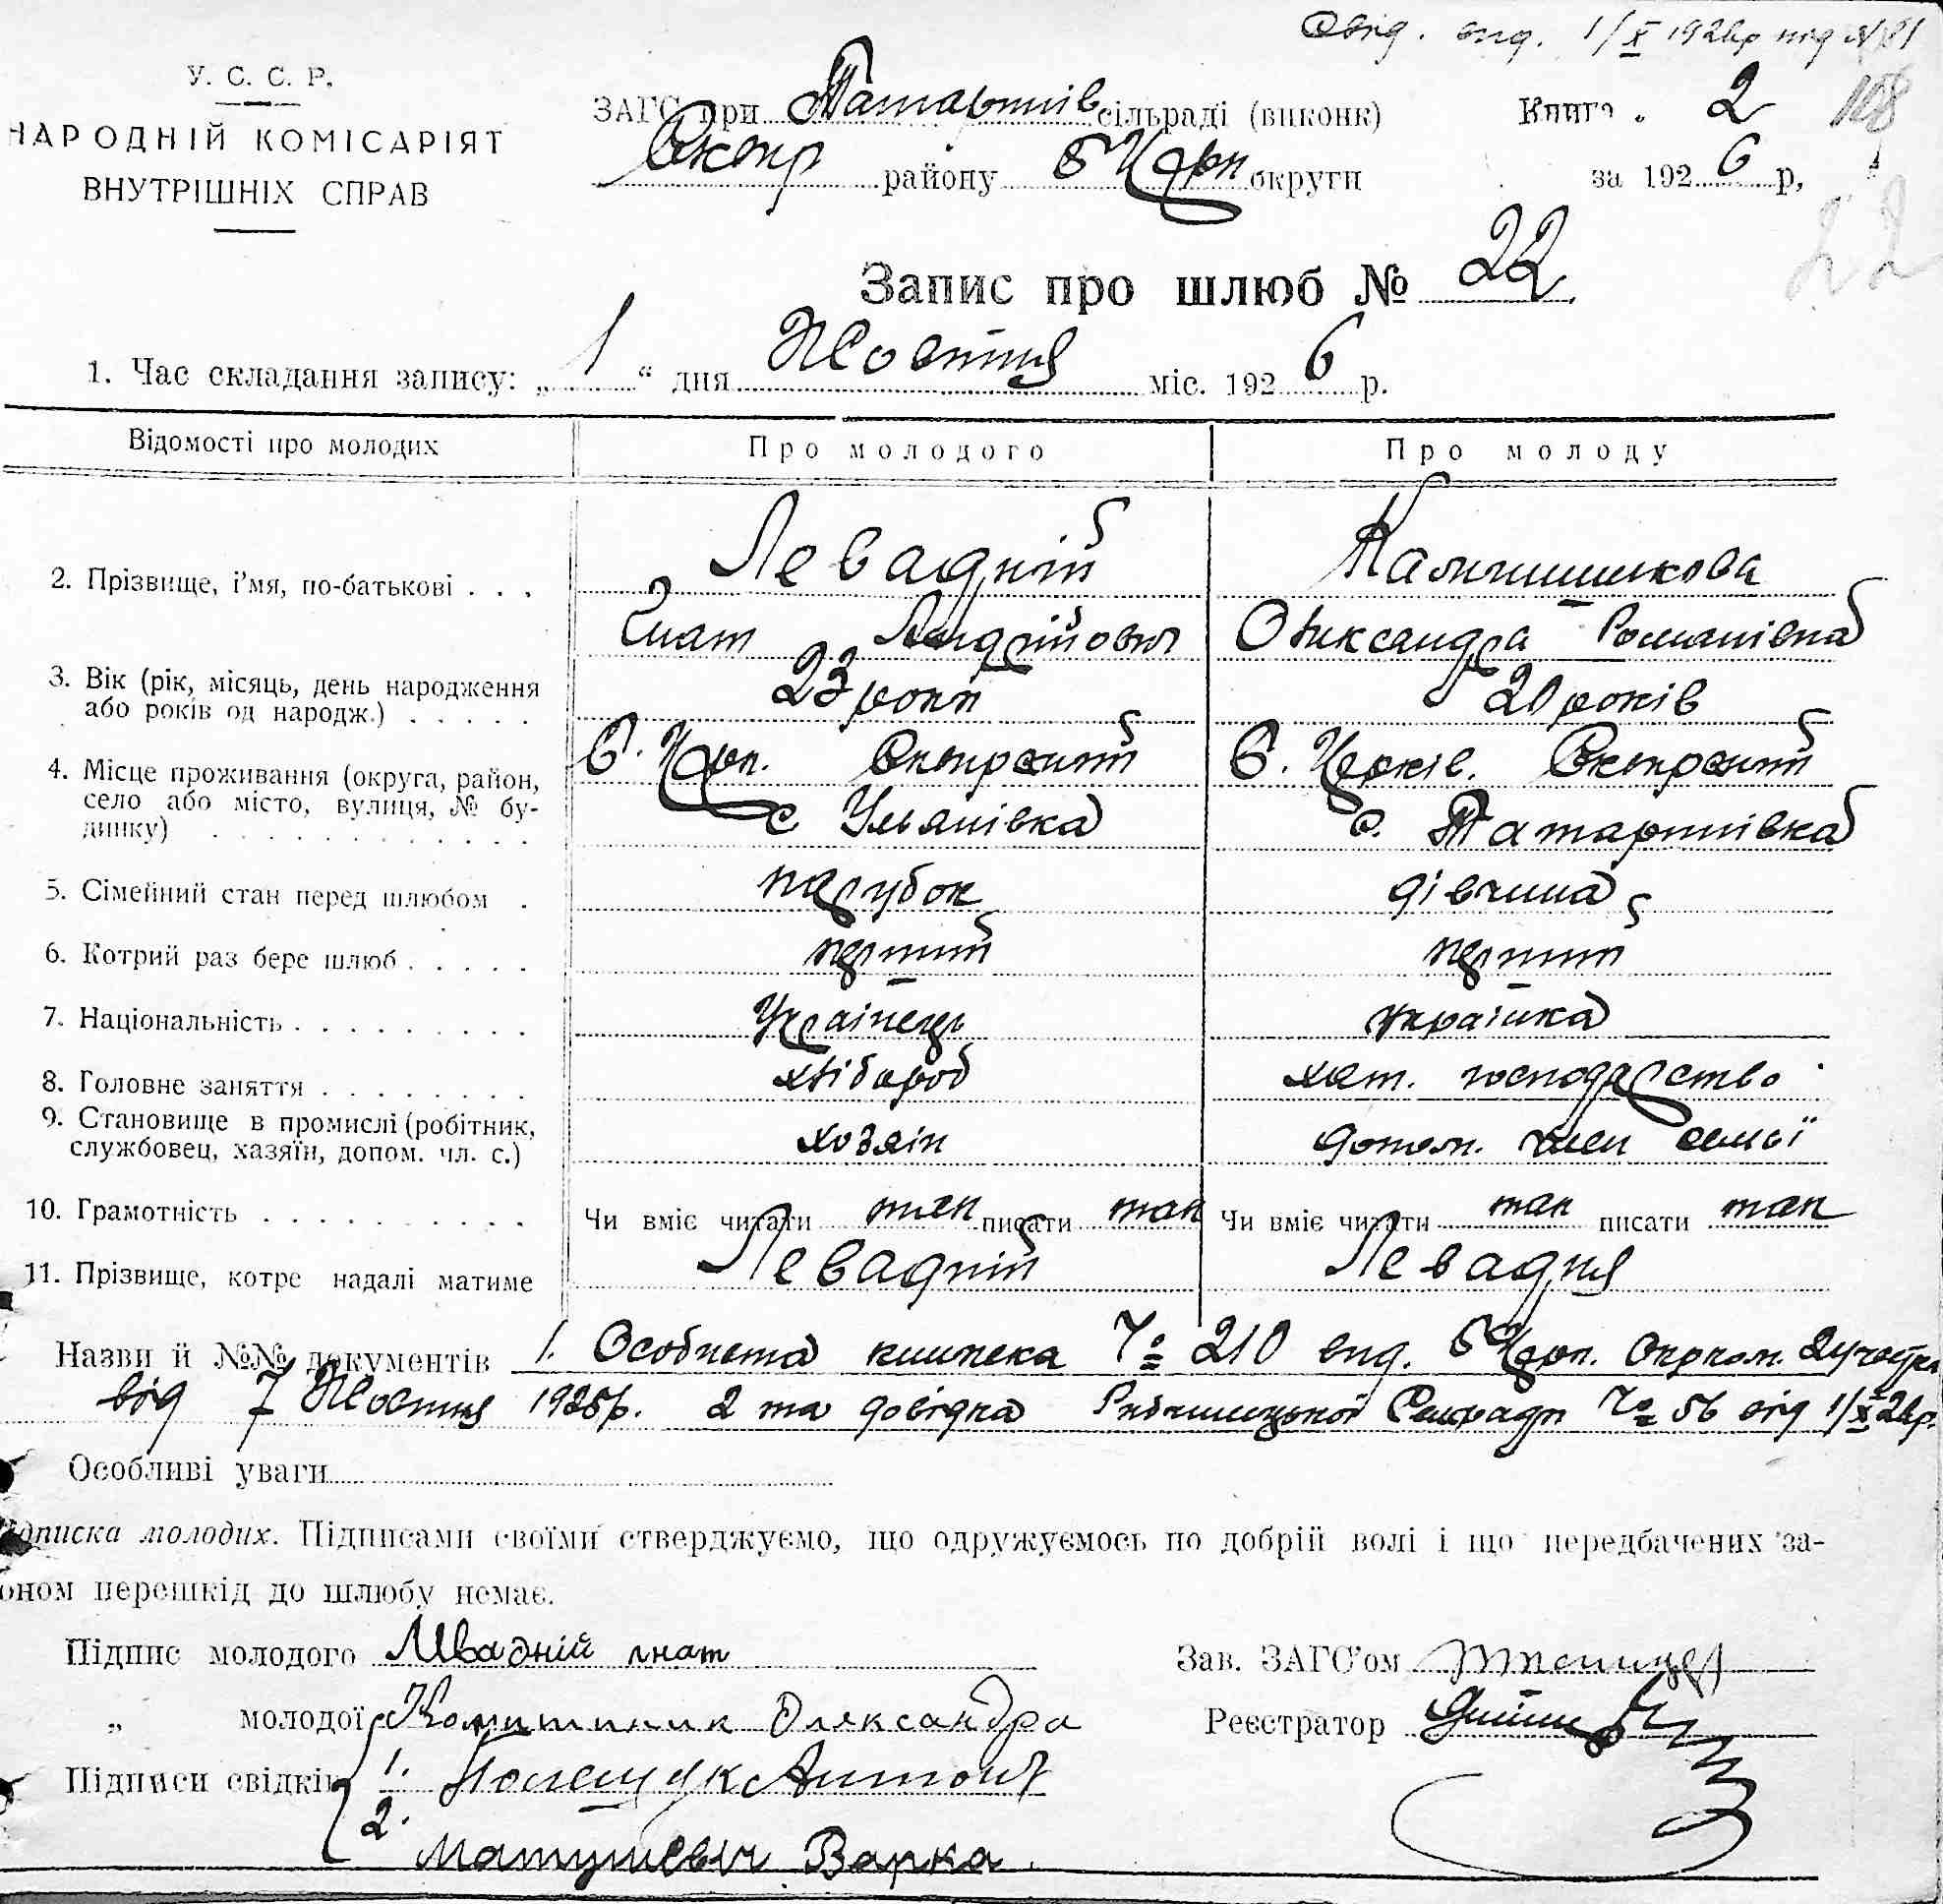 Свід. вид. 1/X 1926р під № 81
У. С. С. Р.
НАРОДНІЙ КОМІСАРІЯТ
ВНУТРІШНІХ СПРАВ
ЗАГС при Татарнів сільраді (виконк)
Сквир району БЦерк округи
Книга 2
108
за 1926 р,
22
Запис про шлюб № 22
1. Час складання запису: „1“ дня Жовтня міс. 1926 р.
Відомості про молодих Про молодого Про молоду
2. Прізвище, і'мя, по-батькові . . . Левадній
Гнат Андрійович Олександра Романівна
3. Вік (рік, місяць, день народження або років од народж.) . . . . . 23 роки 20 років
4. Місце проживання (округа, район, село або місто, вулиця, № будинку) Б. Церк. Сквирский Б. Церків. Сквирский
с Ульянівка с. Татаринівка
5. Сімейний стан перед шлюбом . парубок дівчина
6. Котрий раз бере шлюб . . . . . перший перший
7. Національність . . . . . . . . . Українець українка
8. Головне заняття . . . . . . . . хлібороб хат. господарство
9. Становище в промислі (робітник, службовец, хазяїн, допом. чл. с.) хозяін допом. член семьї
10. Грамотність . . . . . . . . . . Чи вміє читати так писати так Чи вміє читати так писати так
11. Прізвище, котре надалі матиме Левадній Левадня
Назви й №№ документів 1. Особиста книжка № 210 вид. БЦерк. Окрком. 2 участка
від 7 Жовтня 1925р. 2 та довідка Сельради № 56 від 1/X 26р.
Особливі уваги
Підписка молодих. Підписами своїми стверджуємо, що одружуємось по добрій волі і що передбачених за-
оном перешкід до шлюбу немає.
Підпис молодого Лівадній гнат Зав. ЗАГС'ом
„ молодої Олександра Реєстратор
Підписи свідків 1. Полещук Антон
2. Матушевич Варка